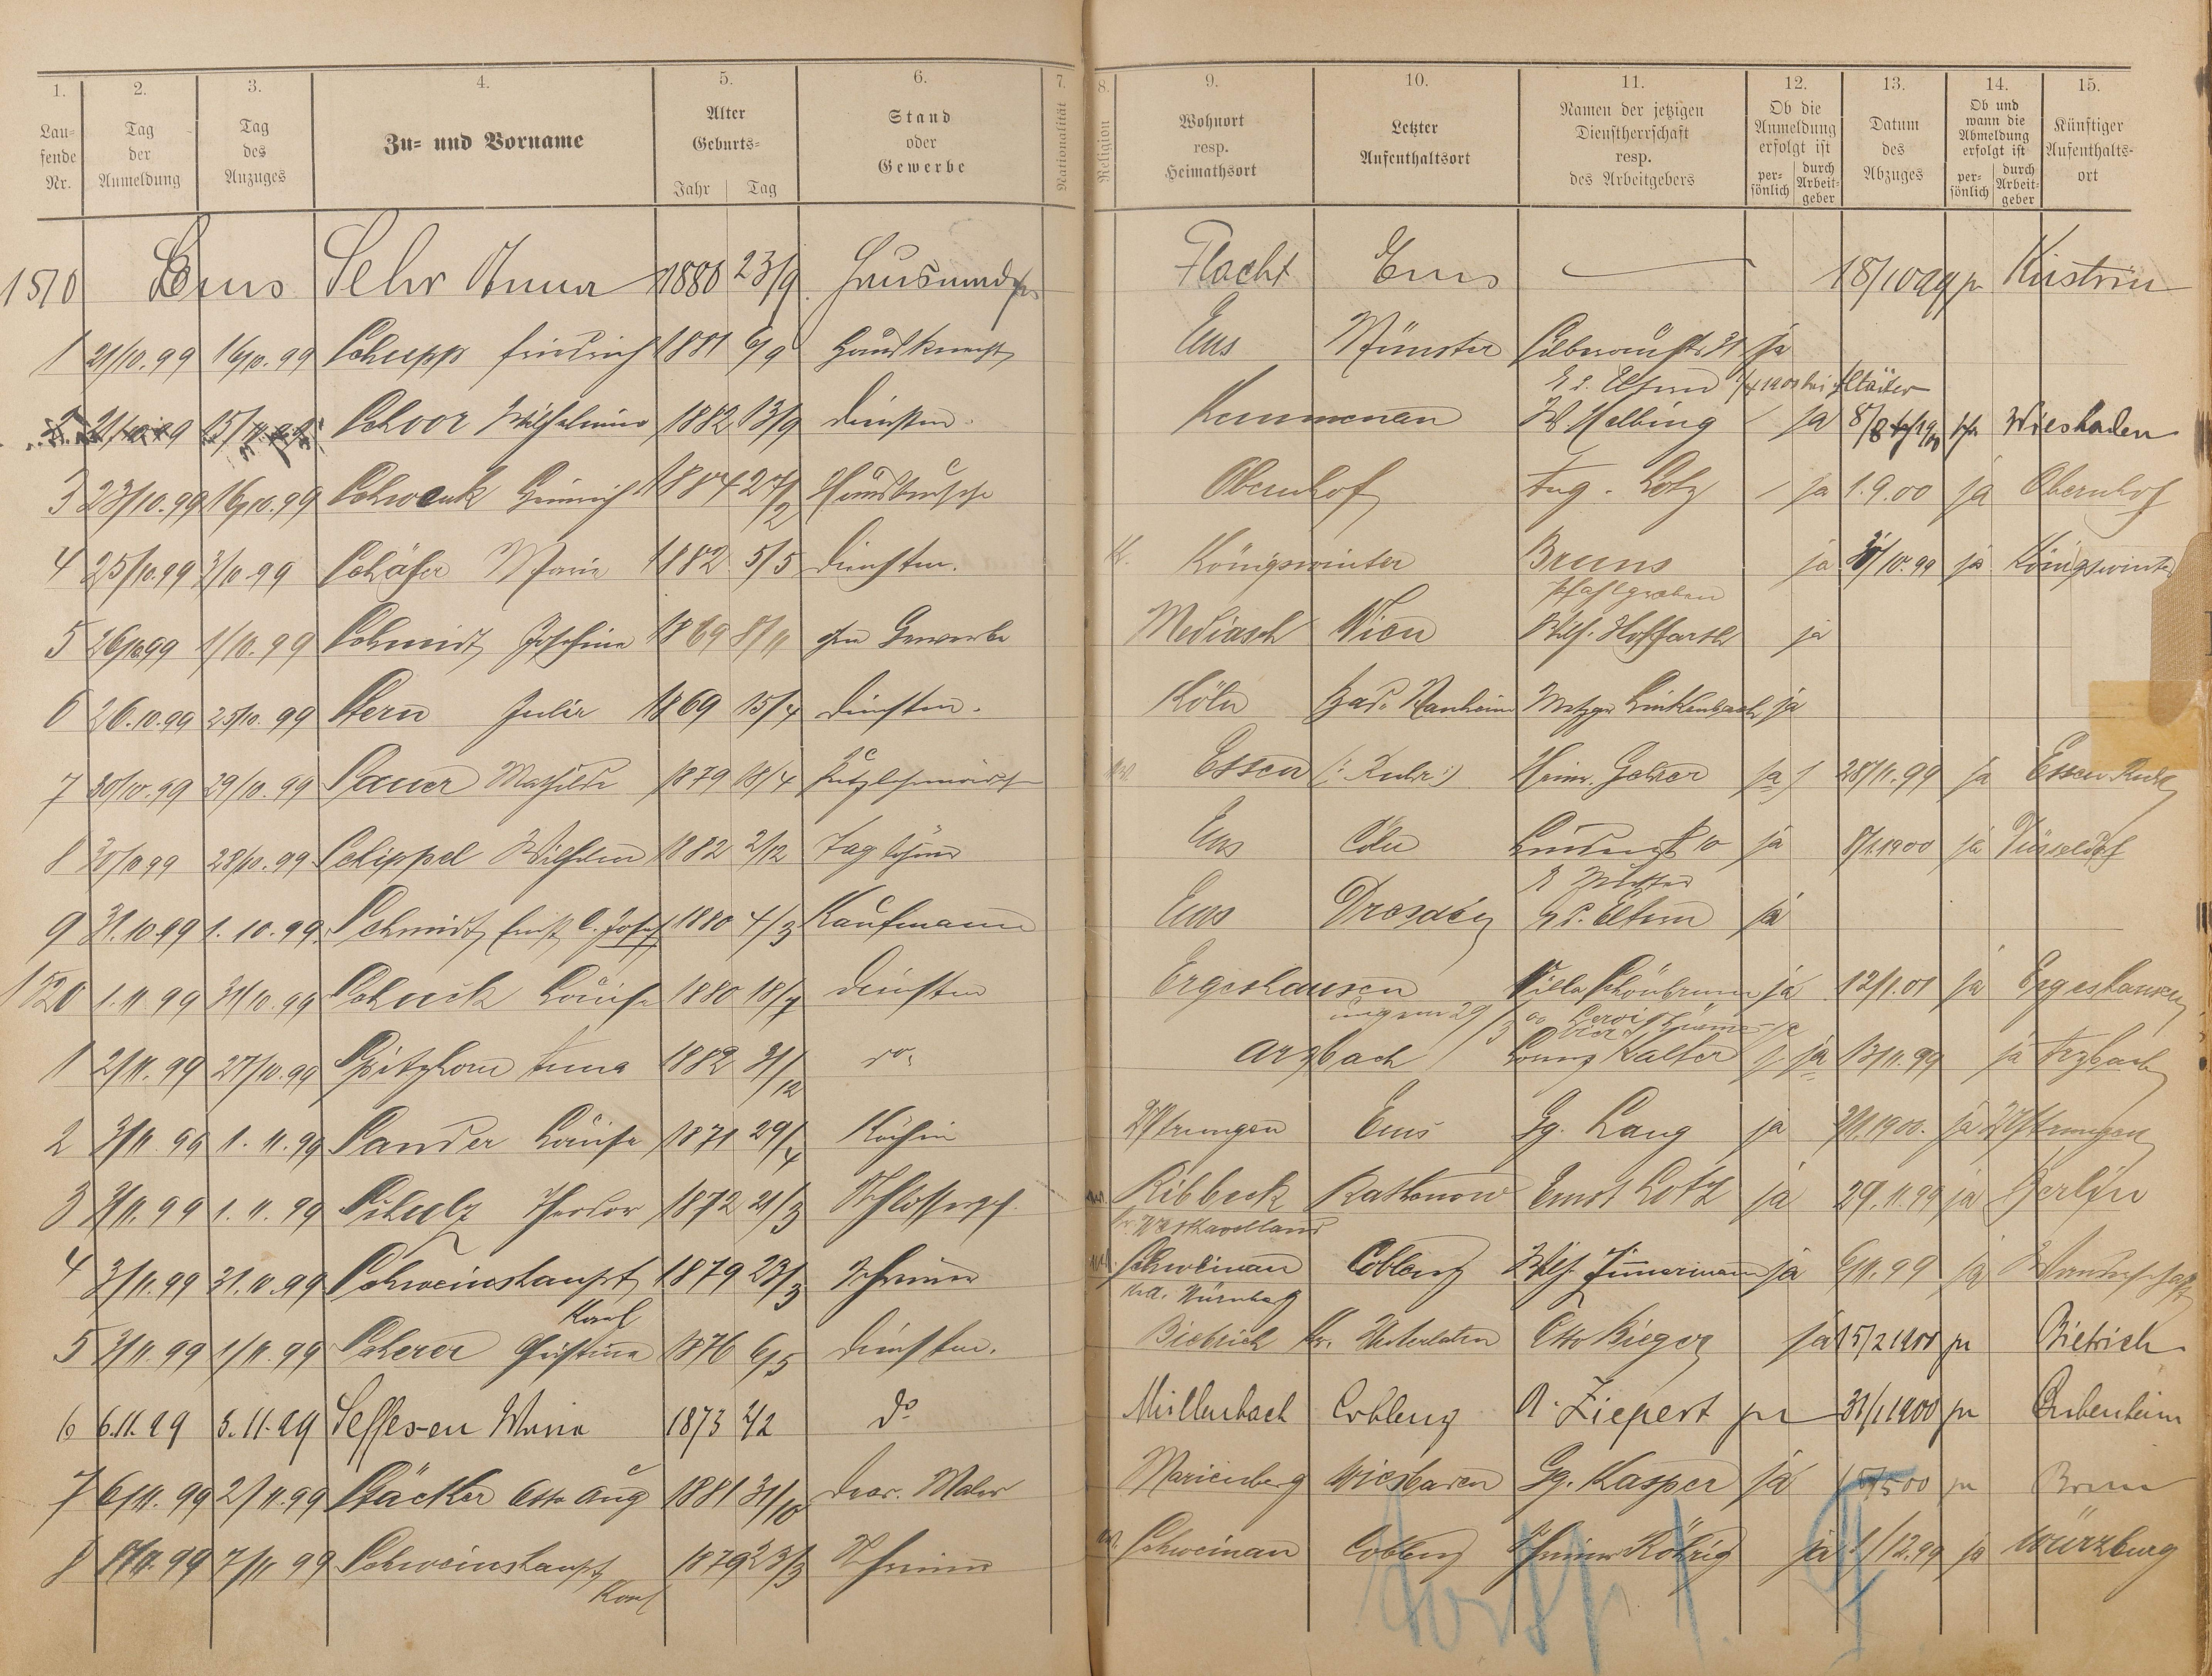 1. 2. 3. 4. 5. 6. 7. 8. 9. 10. 11. 12. 13. 14. 15.
Lau-
fende
Nr.
Tag
der
Anmeldung
Tag
des
Anzuges
Zu- und Vorname
Alter
Geburts-
Jahr Tag
Stand
oder
Gewerbe
Nationalität
Religion
Wohnort
resp.
Heimathsort
Letzter
Aufenthaltsort
Namen der jetzigen
Dienstherrschaft
resp.
des Arbeitgebers
Ob die
Anmeldung
erfolgt ist
per-
sönlich
durch
Arbeit-
geber
Datum
des
Abzuges
Ob und
wann die
Abmeldung
erfolgt ist
per-
sönlich
durch
Arbeit-
geber
Künftiger
Aufenthalts-
ort
1510 Ems Sehr Anna 1880 23/9 Flacht Ems 18/10 99 Küstrin
1 21/10.99 16/10.99 Schupp Friedrich 1881 6/9 Hausknecht Ems Münster Silberaustr 31 ja
z. d. Eltern
2 Schoor Wilhelmine 1882 13/9 Dienstm. Kemmenau W Helbing ja Wiesbaden
3 23/10.99 16/10.99 Schwenk Heinrich 1884 27/2 Hausbursche Obernhof Aug. Lotz ja 1.9.00 ja Obernhof
4 25/10.99 3/10.99 Schäfer Marie 1882 5/5 Dienstm. K. Königswinter Bruns ja 30/10.99 ja Königswinter
Pfahlgraben
5 26/10 99 1/10.99 Schmidt Josefine 1869 8/11 ohn Gewerbe Mediasch Wien Wilh. Hoffarth ja
6 26.10.99 25/10.99 Stern Julie 1869 15/4 Dienstm. Köln Bad Nauheim Metzger Linkenbach ja
7 30/10.99 29/10.99 Sauer Mathilde 1879 18/4 Essen (: Ruhr :) Heinr. Gehrer ja 28/11.99 ja Essen Ruhr
8 30/10 99 28/10.99 Schippel Wilhelm 1882 2/12 Taglöhner Ems Cöln Lindenst 10 ja 8/1 1900 ja Düsseldorf
9 31.10.99 1.10.99 Schmidt Ernst C. Josef 1880 4/3 Kaufmann Ems Dresden z. d. Eltern ja
1520 1.11.99 31/10.99 Schuck Louise 1880 18/7 Diensten Ergeshausen Villa Schönbrunn ja 12/1.01 ja Ergeshausen
1 2/11.99 27/10.99 Spitzhorn Anna 1882 31/12 do. Arzbach Lorenz Kalter ja 13/11.99 ja Arzbach
2 3/11.99 1.11.99 Sander Louise 1871 29/4 Köchin Ems Gg. Lang ja ja
3 3/11.99 1.11.99 Schulz Theodor 1872 21/3 Schlosserges. Ribbeck Rathenow Ernst Lotz ja 29.11.99 ja Berlin
Kr. Westhavelland
4 3/11.99 31.10.99 Schweinshaupt 1879 23/3 Schreiner Schweinau Coblenz Wilh. Zimmermann ja 6/11.99 ja Wanderschaft
Karl
Krs. Nürnberg
5 3/11.99 1/11.99 Scherer Christine 1876 6/5 Diensten. Biebrich Kr. Unterlahn Otto Bieger ja 15/2 1900 Bietrich
6 6.11.99 5.11.99 Seffesen Maria 1873 2/2 do Müllenbach Coblenz A. Ziepert 31/1 1900 Bubenheim
7 6/11.99 2/11.99 Stäcker Otto Aug 1881 31/10 Decor. Maler Marienberg Wiesbaden Gg. Kasper ja
8 8/11.99 7/11 99 Schweinshaupt 1879 23/3 Schreiner Schweinau Coblenz Schreiner Röhrig ja 1/12.99 ja Würzburg
Karl